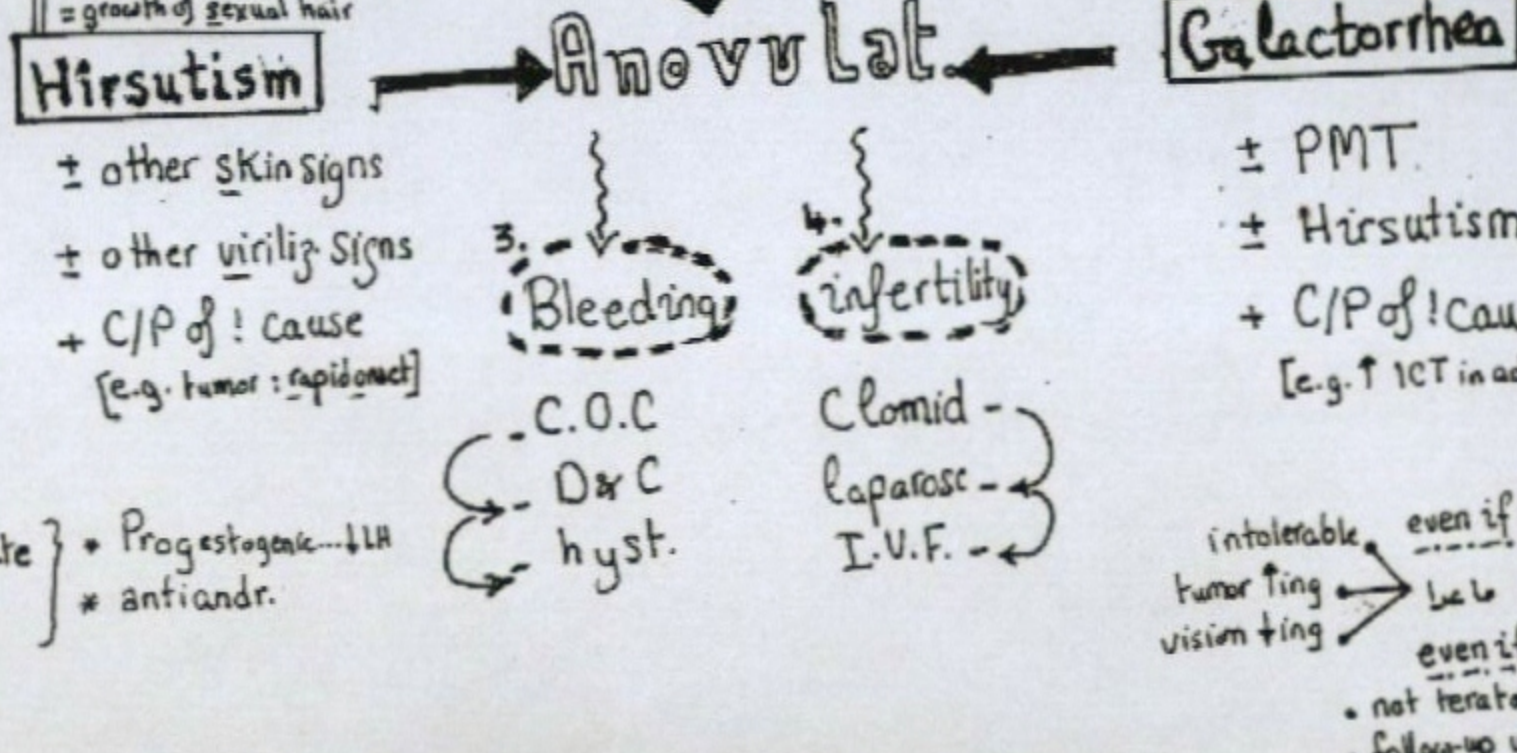 = growth of sexual hair
Hirsutism
± other skin signs
± other viriliz signs
+ C/P of ! cause
[e.g. tumor : rapid onset]
* Progestogenic...↓LH
* antiandr.
Anovulat.
3. Bleeding
- C.O.C
- D&C
- hyst.
4. infertility
Clomid -
laparosc -
I.V.F. -
Galactorrhea
± PMT
± Hirsutism
+ C/P of !
[e.g. ↑ ICT in
intolerable
tumor ↑ing
vision ↓ing
even if
even if
• not